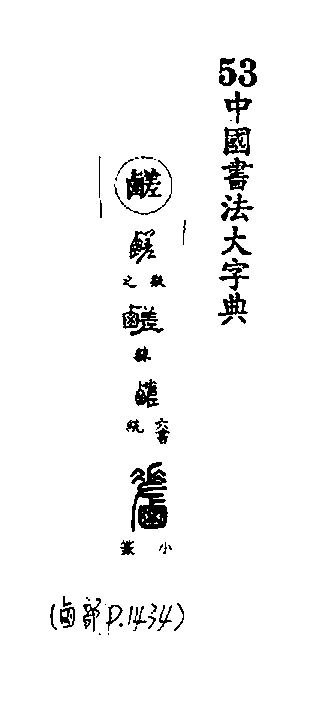 53中國書法大字典
鹺
鹺
之
鹺
隸
鹺
六書統
小篆
(鹵部P.1434)